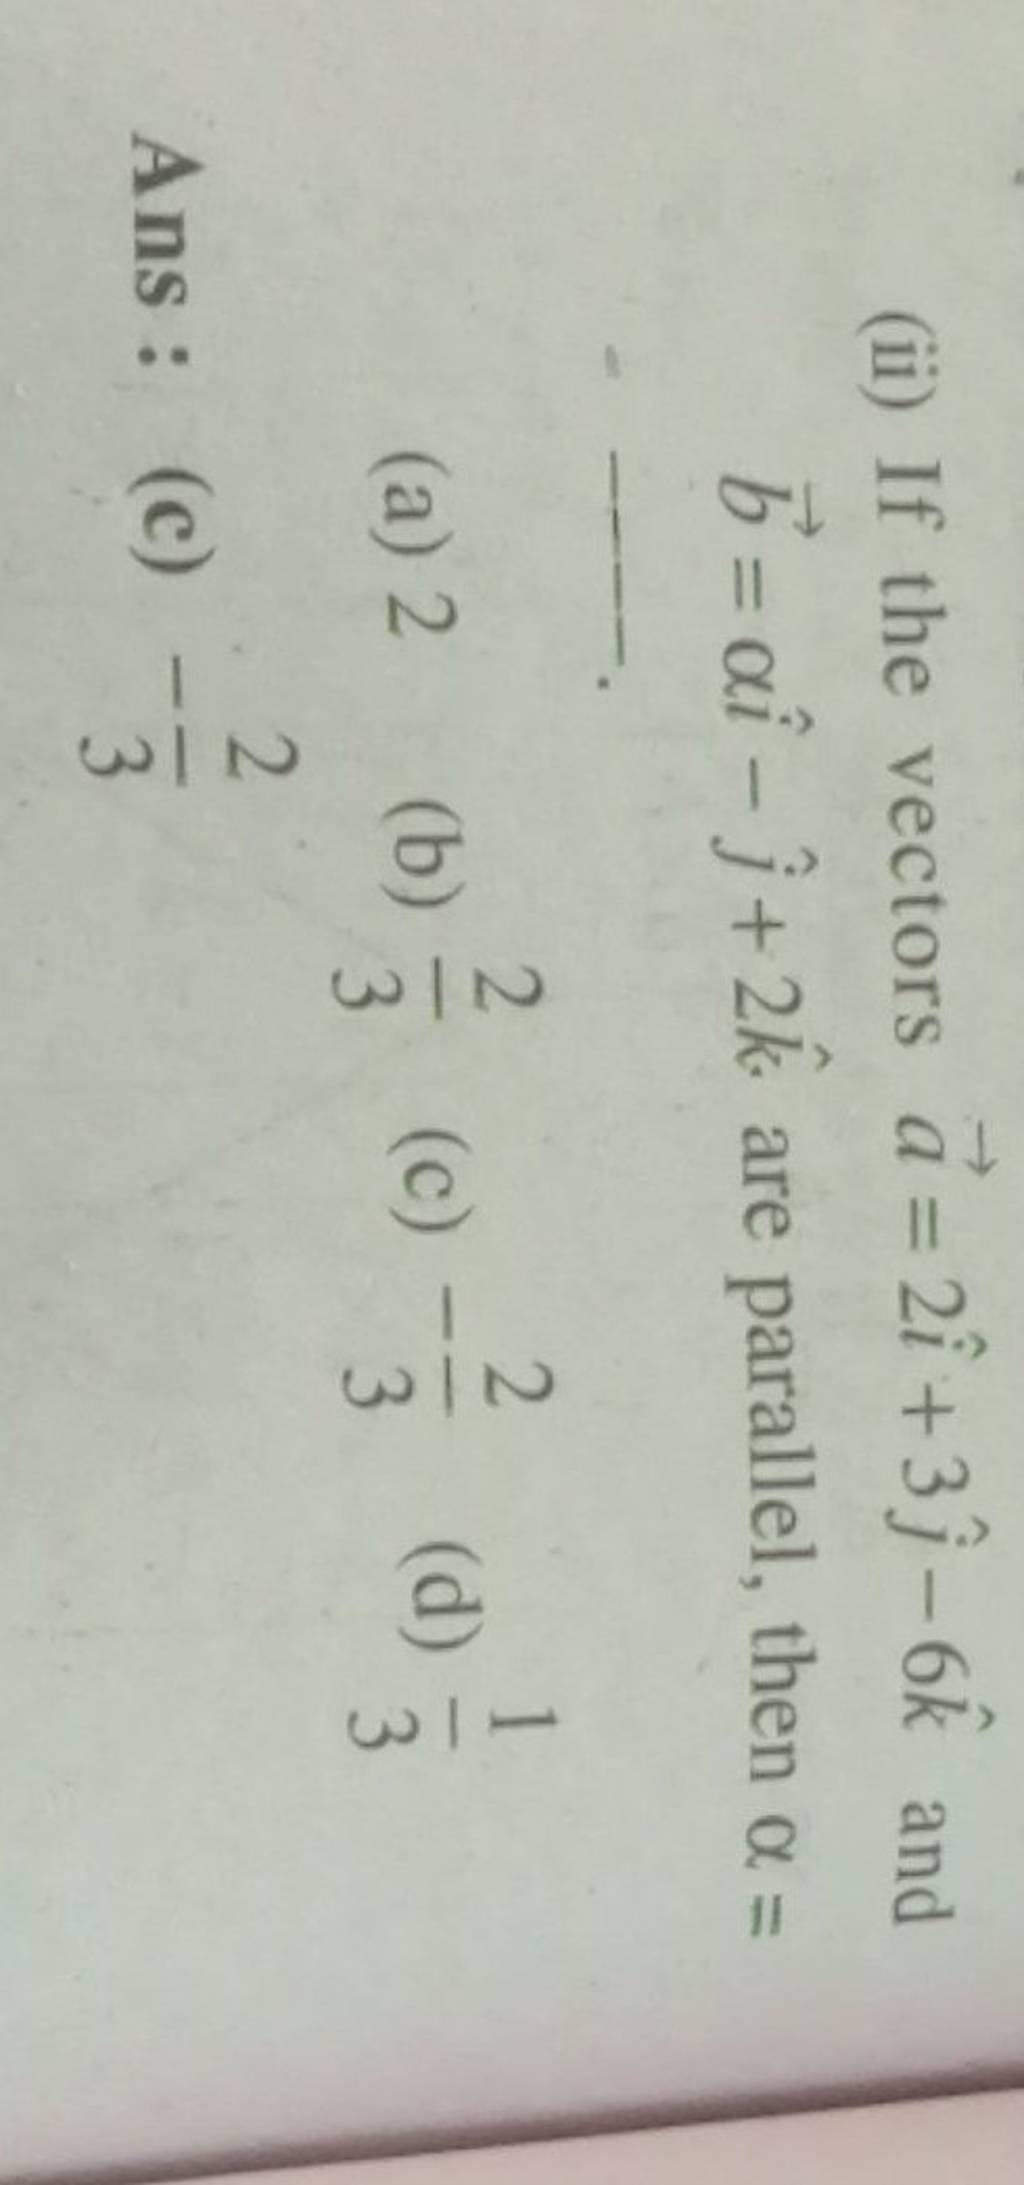 (ii) If the vectors $\vec{a} = 2\hat{i} + 3\hat{j} - 6\hat{k}$ and
$\vec{b} = \alpha\hat{i} - \hat{j} + 2\hat{k}$ are parallel, then α =
______.
(a) 2 (b) $\frac{2}{3}$ (c) $-\frac{2}{3}$ (d) $\frac{1}{3}$
Ans : (c) $-\frac{2}{3}$